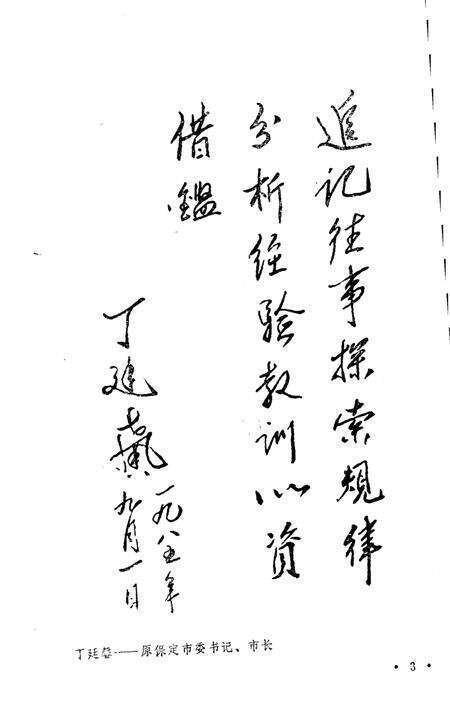 追记往事探索规律
分析经验教训以资
借鉴
丁廷馨
一九八五年
九月一日
丁廷馨——原保定市委书记、市长
• 3 •